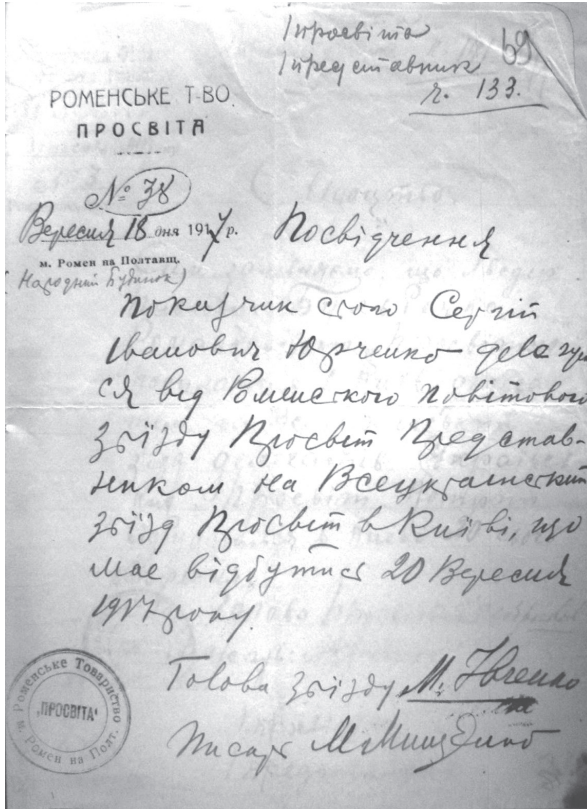 Просвіта
Представник
ч. 133.
69
РОМЕНСЬКЕ Т-ВО.
ПРОСВІТА
№ 38
Вересня 18 дня 1917 р.
м. Ромен на Полтавщ.
(Народний Будинок)
Посвідчення
Показчик сього Сергій
Іванович Юрченко делегує
ся від Роменского повітового
Зʼїзду Просвіт Представ-
ником на Всеукраїнский
зʼїзд Просвіт в Київі, що
має відбутися 20 Вересня
1917 року.
Голова Зʼїзду М. Івченко
Писарь М.
Роменське Товариство
„ПРОСВІТА"
м Ромен на Полт.